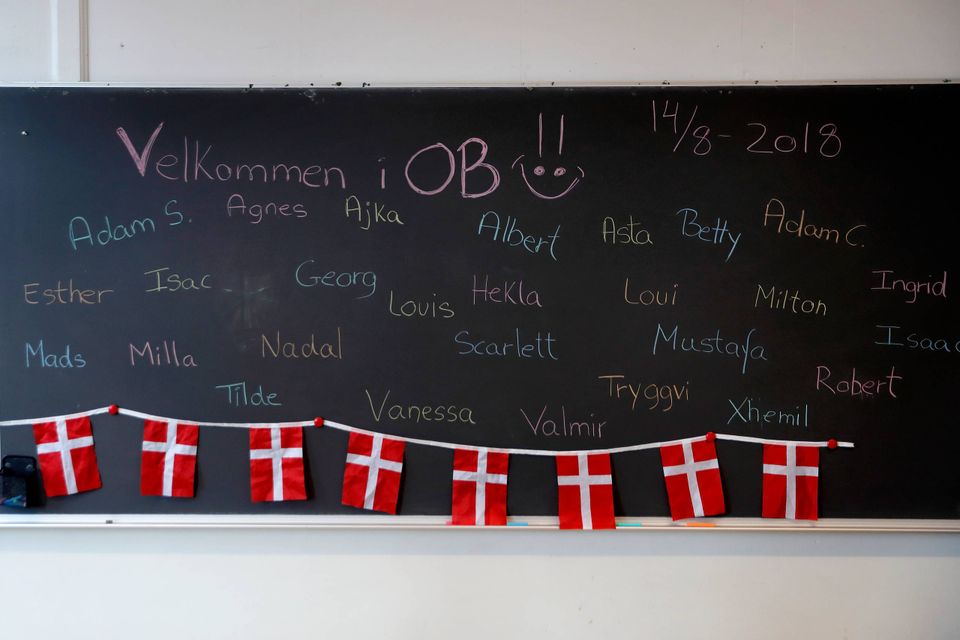 Velkommen i OB!! 14/8-2018
Adam S. Agnes Ajka Albert Asta Betty Adam C.
Esther Isac Georg Louis Hekla Loui Milton Ingrid
Mads Milla Nadal Scarlett Mustafa Isaac
Tilde Vanessa Valmir Tryggvi Xhemil Robert